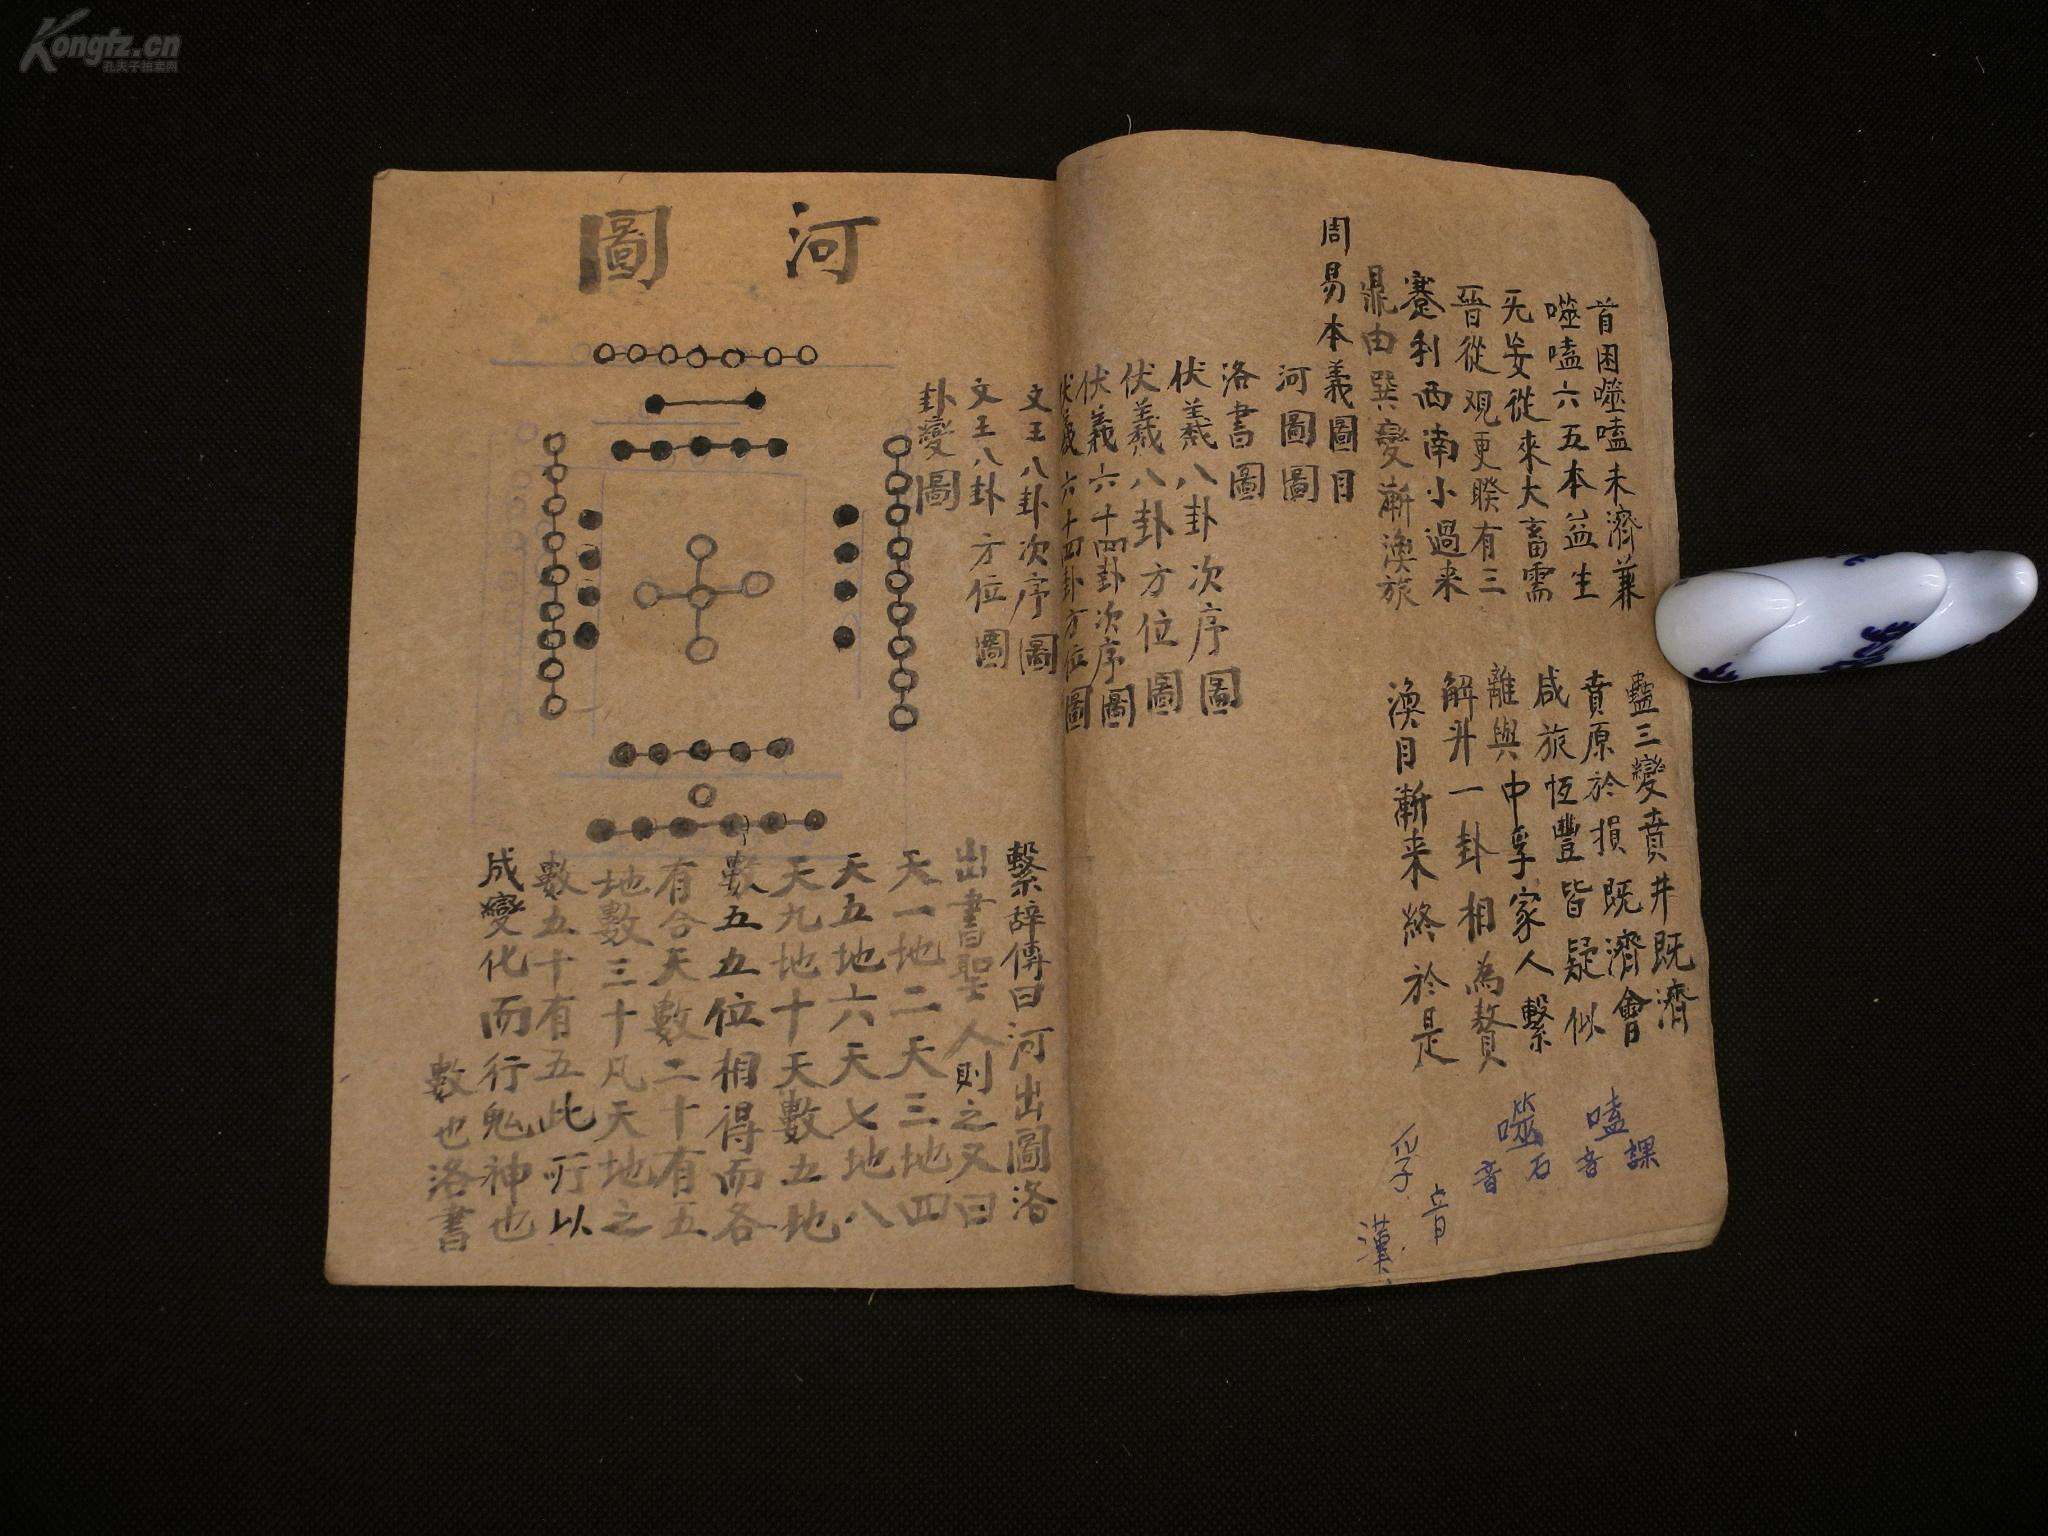 Kongfz.cn
孔夫子拍卖网
首困噬嗑未濟兼 蠱三變賁井既濟
噬嗑六五本益生 賁原於損既濟會
无妄從來大畜需 咸旅恆豐皆疑似
晉從观更睽有三 離與中孚家人繫
蹇利西南小過来 解升一卦相為贅
鼎由巽變漸渙旅 渙自漸来終於是
嗑音課
噬音石
孚音
漢
周易本義圖目
河圖圖
洛書圖
伏羲八卦次序圖
伏羲八卦方位圖
伏羲六十四卦次序圖
伏羲六十四卦方位圖
文王八卦次序圖
文王八卦方位圖
卦變圖
河圖
繫辭傳曰河出圖洛
出書聖人則之又曰
天一地二天三地四
天五地六天七地八
天九地十天數五地
數五五位相得而各
有合天數二十有五
地數三十凡天地之
數五十有五此所以
成變化而行鬼神也
數也洛書